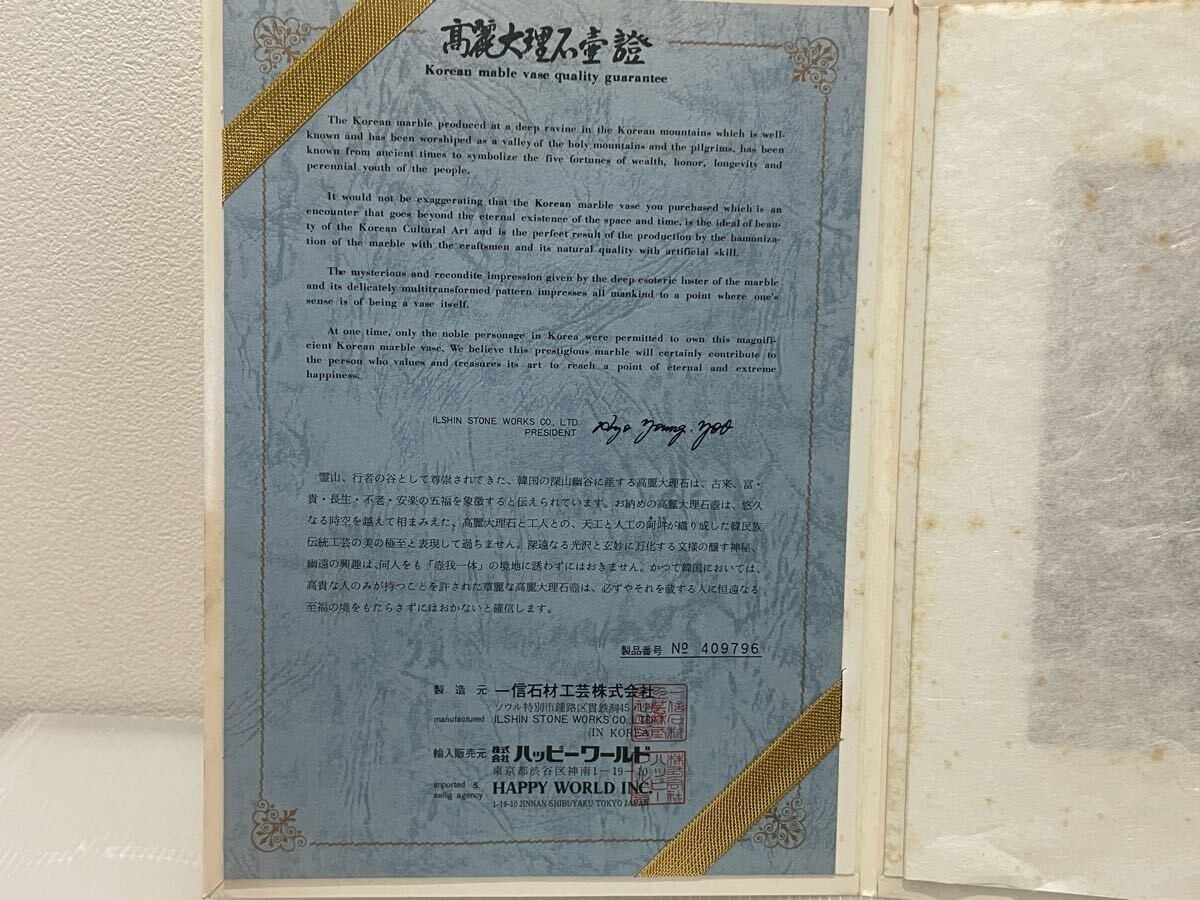 高麗大理石壷證
Korean mable vase quality guarantee
The Korean marble produced at a deep ravine in the Korean mountains which is well-
known and has been worshiped as a valley of the holy mountains and the pilgrims, has been
known from ancient times to symbolize the five fortunes of wealth, honor, longevity and
perennial youth of the people.
It would not be exaggerating that the Korean marble vase you purchased which is an
encounter that goes beyond the eternal existence of the space and time, is the ideal of beau-
ty of the Korean Cultural Art and is the perfect result of the production by the hamoniza-
tion of the marble with the craftsmen and its natural quality with artificial skill.
The mysterious and recondite impression given by the deep esoteric luster of the marble
and its delicately multitransformed pattern impresses all mankind to a point where one's
sense is of being a vase itself.
At one time, only the noble personage in Korea were permitted to own this magnifi-
cient Korean marble vase. We believe this prestigious marble will certainly contribute to
the person who values and treasures its art to reach a point of eternal and extreme
happiness.
ILSHIN STONE WORKS CO, LTD.
PRESIDENT Hyo Young. Yoo
霊山、行者の谷として尊崇されてきた、韓国の深山幽谷に産する高麗大理石は、古来、富・
貴・長生・不老・安楽の五福を象徴すると伝えられています。お納めの高麗大理石壺は、悠久
なる時空を越えて相まみえた、高麗大理石と工人との、天工と人工の阿吽が織り成した韓民族
伝統工芸の美の極至と表現して過ちません。深遠なる光沢と玄妙に万化する文様の醸す神秘、
幽遠の興趣は、何人をも「壺我一体」の境地に誘わずにはおきません。かつて韓国においては、
高貴な人のみが持つことを許された華麗な高麗大理石壺は、必ずやそれを蔵する人に恒遠なる
至福の境をもたらさずにはおかないと確信します。
製品番号 № 409796
製造元 一信石材工芸株式会社
ソウル特別市鍾路区貫鉄洞45
manufactured ILSHIN STONE WORKS CO., LTD
(IN KOREA)
輸入販売元 株式会社ハッピーワールド
東京都渋谷区神南1-19-10
imported & HAPPY WORLD INC.
sellig agency 1-19-10 JINNAN SHIBUYAKU TOKYO JAPAN